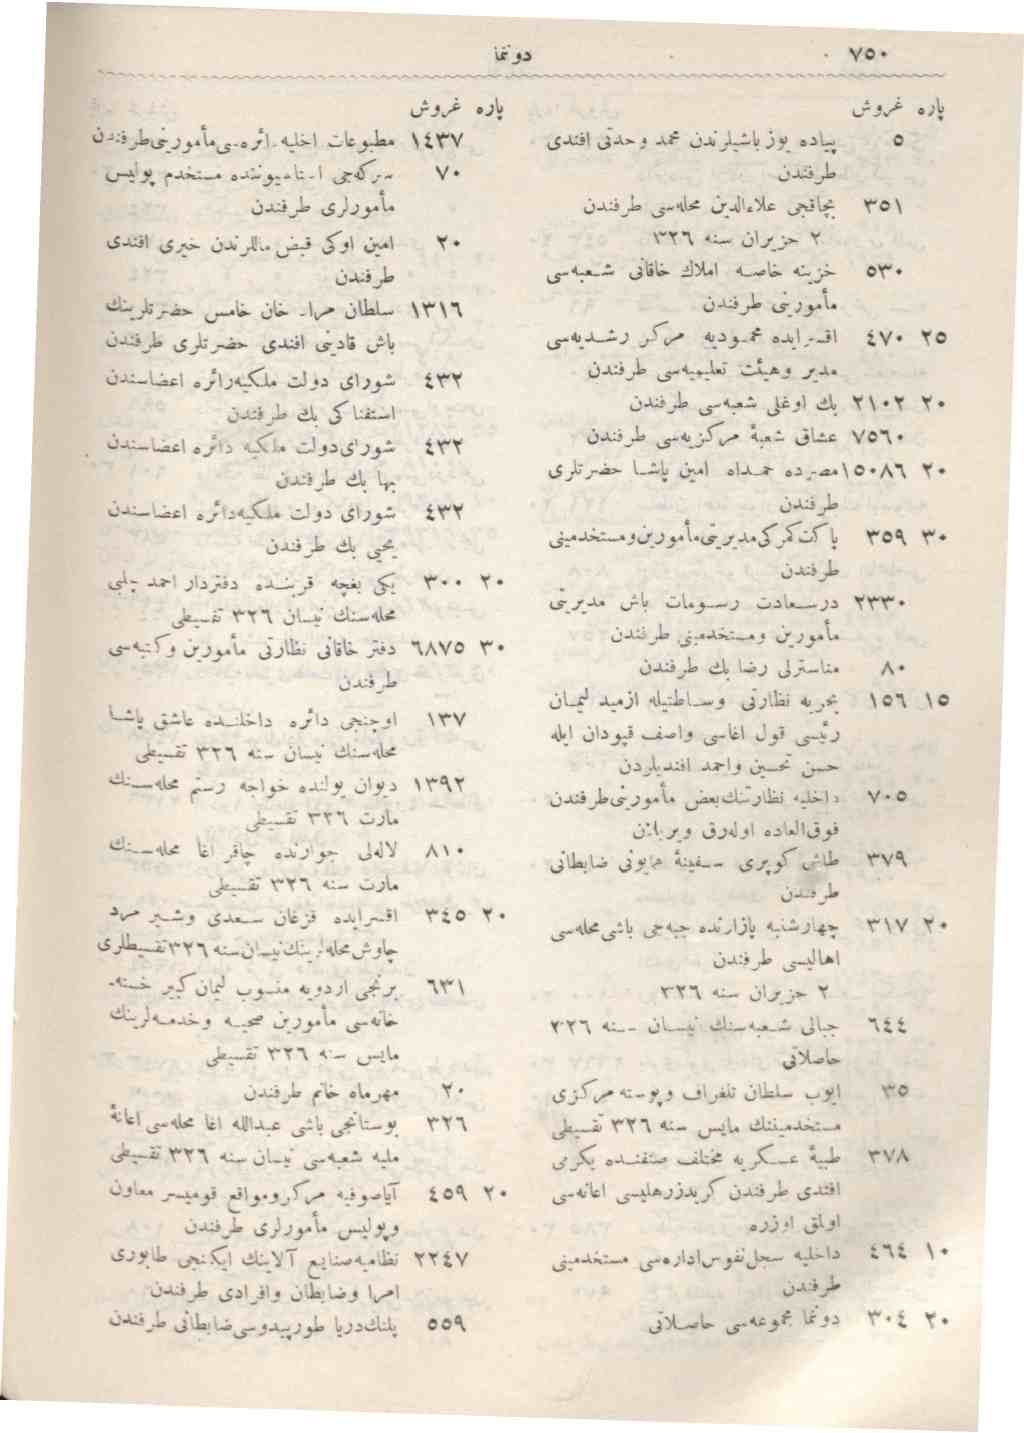 ٧٥٠
دوننما
پاره غروش
٥ پیاده یوز باشیلرندن محمد وحدتی افندی
طرفندن
٣٥١ بچاقجی علاءالدین محله‌سی طرفندن
٢ حزیران سنه ٣٢٦
٥٣٠ خزینه خاصه املاك خاقانی شعبه‌سی
مأمورینی طرفندن
٢٥ ٤٧٠ اقسرایده محمودیه مرکز رشدیه‌سی
مدیر وهیئت تعلیمیه‌سی طرفندن
٢٠ ٢١٠٢ بك اوغلی شعبه‌سی طرفندن
٧٥٦٠ عشاق شعبهٔ مرکزیه‌سی طرفندن
٢٠ ١٥٠٨٦ مصرده حمداه امین پاشا حضرتلری
طرفندن
٣٠ ٣٥٩ پاکت کمرکی مدیریتی مأمورین ومستخدمینی
طرفندن
٢٣٣٠ درسعادت رسومات باش مدیریتی
مأمورین ومستخدمینی طرفندن
٨٠ مناسترلی رضا بك طرفندن
١٥ ١٥٦ بحریه نظارتی وساطتیله ازمید لیمان
رئیسی قول اغاسی واصف قپودان ایله
حسن تحسین واحمد افندیلردن
٧٠٥ داخلیه نظارتنك بعض مأمورینی طرفندن
فوق‌العاده اوله‌رق ویریلن
٣٧٩ طاش کوپری سفینهٔ همایونی ضابطانی
طرفندن
٢٠ ٣١٧ چهارشنبه پازارنده جبه‌جی باشی محله‌سی
اهالیسی طرفندن
٢ حزیران سنه ٣٢٦
٦٤٤ جبالی شعبه‌سنك نیسان سنه ٣٢٦
حاصلاتی
٣٥ ایوب سلطان تلغراف وپوسته مرکزی
مستخدمیننك مایس سنه ٣٢٦ تقسیطی
٣٧٨ طبیهٔ عسکریه مختلف صنفنده یکرمی
افندی طرفندن کریدزرهلیسی اعانه‌سی
اولمق اوزره
١٠ ٤٦٤ داخلیه سجل نفوس اداره‌سی مستخدمینی
طرفندن
٢٠ ٣٠٤ دوننما مجموعه‌سی حاصلاتی
پاره غروش
١٤٣٧ مطبوعات داخلیه دائره‌سی مأمورینی طرفندن
٧٠ سرکه‌جی استاسیوننده مستخدم پولیس
مأمورلری طرفندن
٢٠ امین اوکی قبض ماللرندن خیری افندی
طرفندن
١٣١٦ سلطان مراد خان خامس حضرتلرینك
باش قادینی افندی حضرتلری طرفندن
٤٣٢ شورای دولت ملکیه دائره اعضاسندن
استفناکی بك طرفندن
٤٣٢ شورای دولت ملکیه دائره اعضاسندن
بها بك طرفندن
٤٣٢ شورای دولت ملکیه دائره اعضاسندن
یحیی بك طرفندن
٢٠ ٣٠٠ یکی بغچه قربنده دفتردار احمد چلبی
محله‌سنك نیسان ٣٢٦ تقسیطی
٣٠ ٦٨٧٥ دفتر خاقانی نظارتی مأمورین وکتبه‌سی
طرفندن
١٣٧ اوچنجی دائره داخلنده عاشق پاشا
محله‌سنك نیسان سنه ٣٢٦ تقسیطی
١٣٩٢ دیوان یولنده خواجه رستم محله‌سنك
مارت ٣٢٦ تقسیطی
٨١٠ لاله‌لی جوارنده چاقر اغا محله‌سنك
مارت سنه ٣٢٦ تقسیطی
٢٠ ٣٤٥ اقسرایده قزغان سعدی وشیر مرد
چاوش محله‌لرینك نیسان سنه ٣٢٦ تقسیطلری
٦٣١ برنجی اردویه منسوب لیمان کبیر خسته‌
خانه‌سی مأمورین صحیه وخدمه‌لرینك
مایس سنه ٣٢٦ تقسیطی
٢٠ مهرماه خانم طرفندن
٣٢٦ بوستانجی باشی عبدالله اغا محله‌سی اعانهٔ
ملیه شعبه‌سی نیسان سنه ٣٢٦ تقسیطی
٢٠ ٤٥٩ آیاصوفیه مرکز ومواقع قومیسر معاون
وپولیس مأمورلری طرفندن
٢٢٤٧ نظامیه صنایع آلاینك ایکنجی طابوری
امرا وضابطان وافرادی طرفندن
٥٥٩ پلنك دریا طورپیدوسی ضابطانی طرفندن